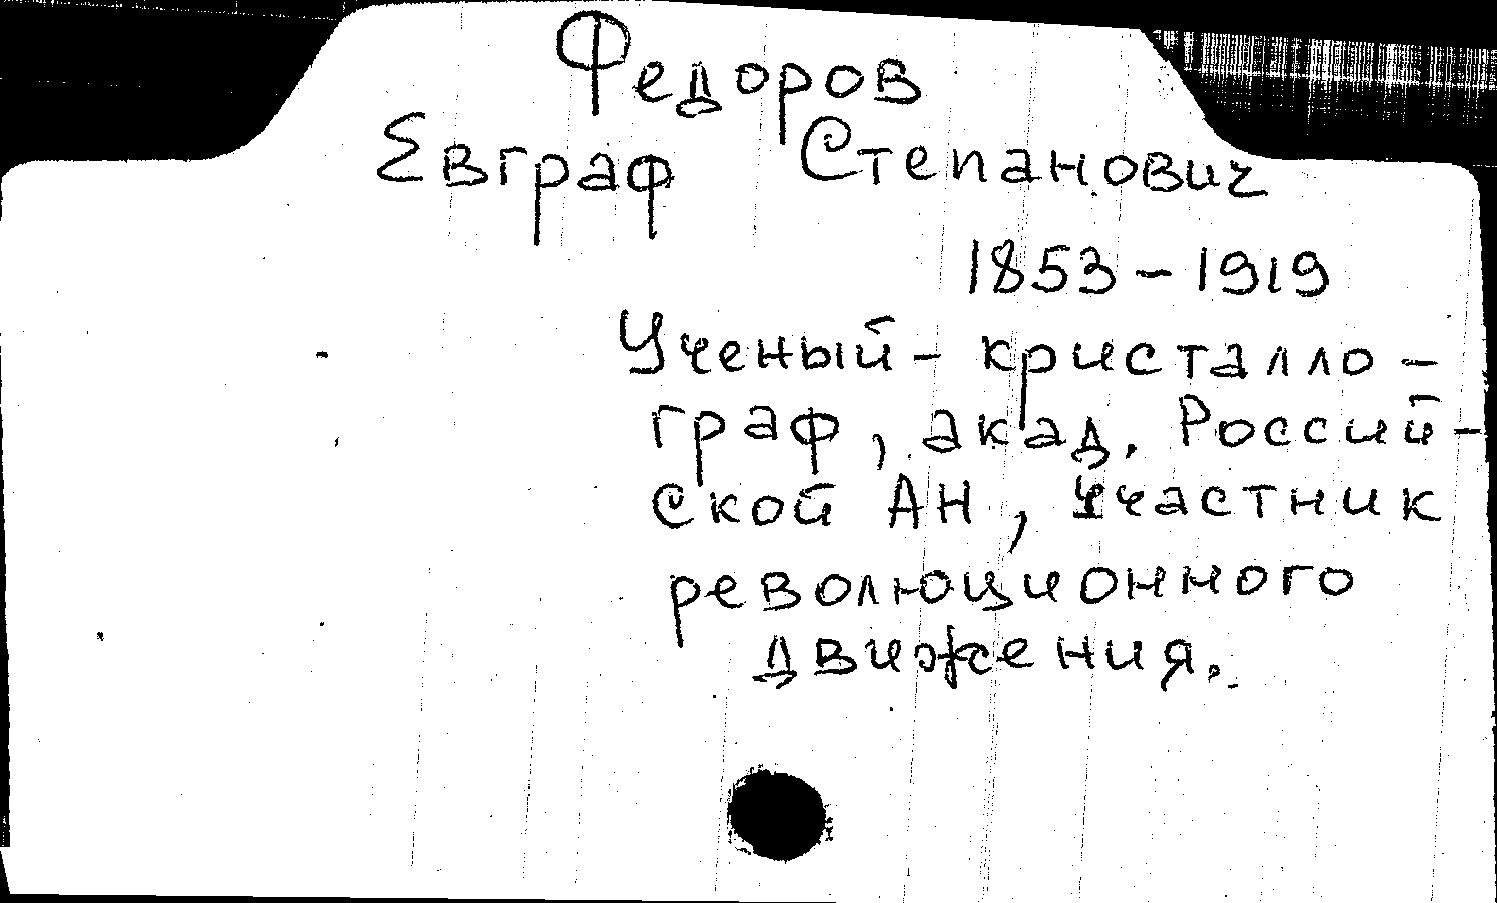 Федоров
Евграф Степанович
1853-1919
Ученый - кристалло-
граф, акад. Россий-
ской АН, участник
революционного
движения.